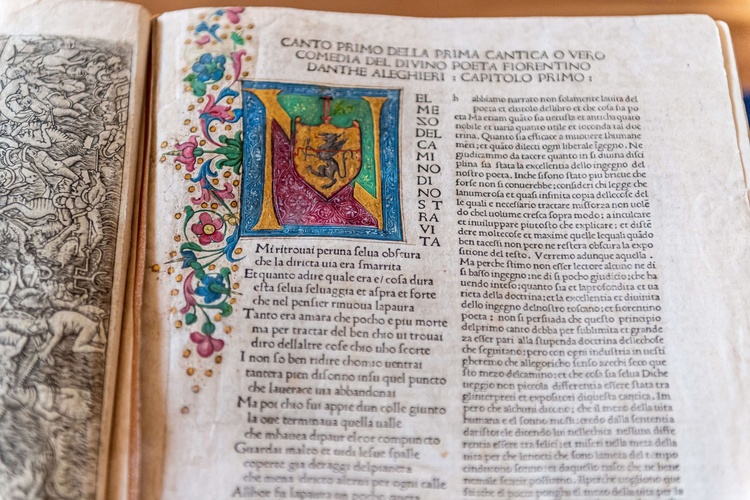 CANTO PRIMO DELLA PRIMA CANTICA O VERO
COMEDIA DEL DIVINO POETA FIORENTINO
DANTHE ALEGHIERI : CAPITOLO PRIMO :
N
EL
ME
ZO
DEL
CA
MI
NO
DI
NO
ST
RA
VI
TA
Mi ritrouai peruna selua obscura
che la diricta uia era smarrita
Et quanto adire quale era e/ cosa dura
esta selua seluaggia et aspra et forte
che nel pensier rinuoua lapaura
Tanto era amara che pocho e piu morte
ma per tractar del ben chio ui trouai
diro dellaltre cose chio uho scorte
I non so ben ridire chomio uentrai
tantera pien disonno insu quel puncto
che lauerace uia abbandonai
Ma poi chio fui appie dun colle giunto
la oue terminaua quella ualle
che mhauea dipaur elcor compuncto
Guardai
coperte gia
che mena
h abbiamo narrato non solamente lauita del
poeta et eltitolo dellibro et che cosa sia po
eta Ma etiam quáto sia uetusta et anticha quáto
nobile et uaria quanto utile et ioconda tal doc
trina. Quanto sia efficace a muouere lhumane
menti; et quáto dilecti ogni liberale igegno. Ne
giudicammo da tacere quanto in si diuina disci
plina sia stata la excellentia dello ingegno del
nostro poeta. Inche sisono stato piu brieue che
forse non si conuerrebbe; consideri chi legge che
lanumerosa et quasi infinita copia dellecose del
le quali e necessario tractare misforza non uolé
do chel uolume cresca sopra modo; a inculcare
et inuiluppare piutosto che explicare; et diste
dere moltecose et maxime quelle lequali quádo
ben tacessi non pero ne restera obscura la expo
sitione del testo. Verremo adunque aquella.
Ma perche stimo non esser lectore alcuno ne di
si basso ingegno ne di si pocho giudicio; che ha
uendo inteso; quanto sia et laprofondita et ua
rieta della doctrina; et la excellentia et diuinita
dello ingegno delnostro toscano; et fiorentino
poeta: non si persuada che questo principio
delprimo canto debba per sublimita et grande
za esser pari alla stupenda doctrina dellechose
che seguitano; pero con ogni industria in uesti
gheremo che allegoricho senso arechi seco que
sto mezo delcamino; et che cosa sia selua Diche
ueggio non piccola differentia essere stata tra
glinterpreti et expositori diquesta cantica. Im
pero che alchuni dicono; che il mezo della uita
humana e el sonno mossi; credo dalla sententia